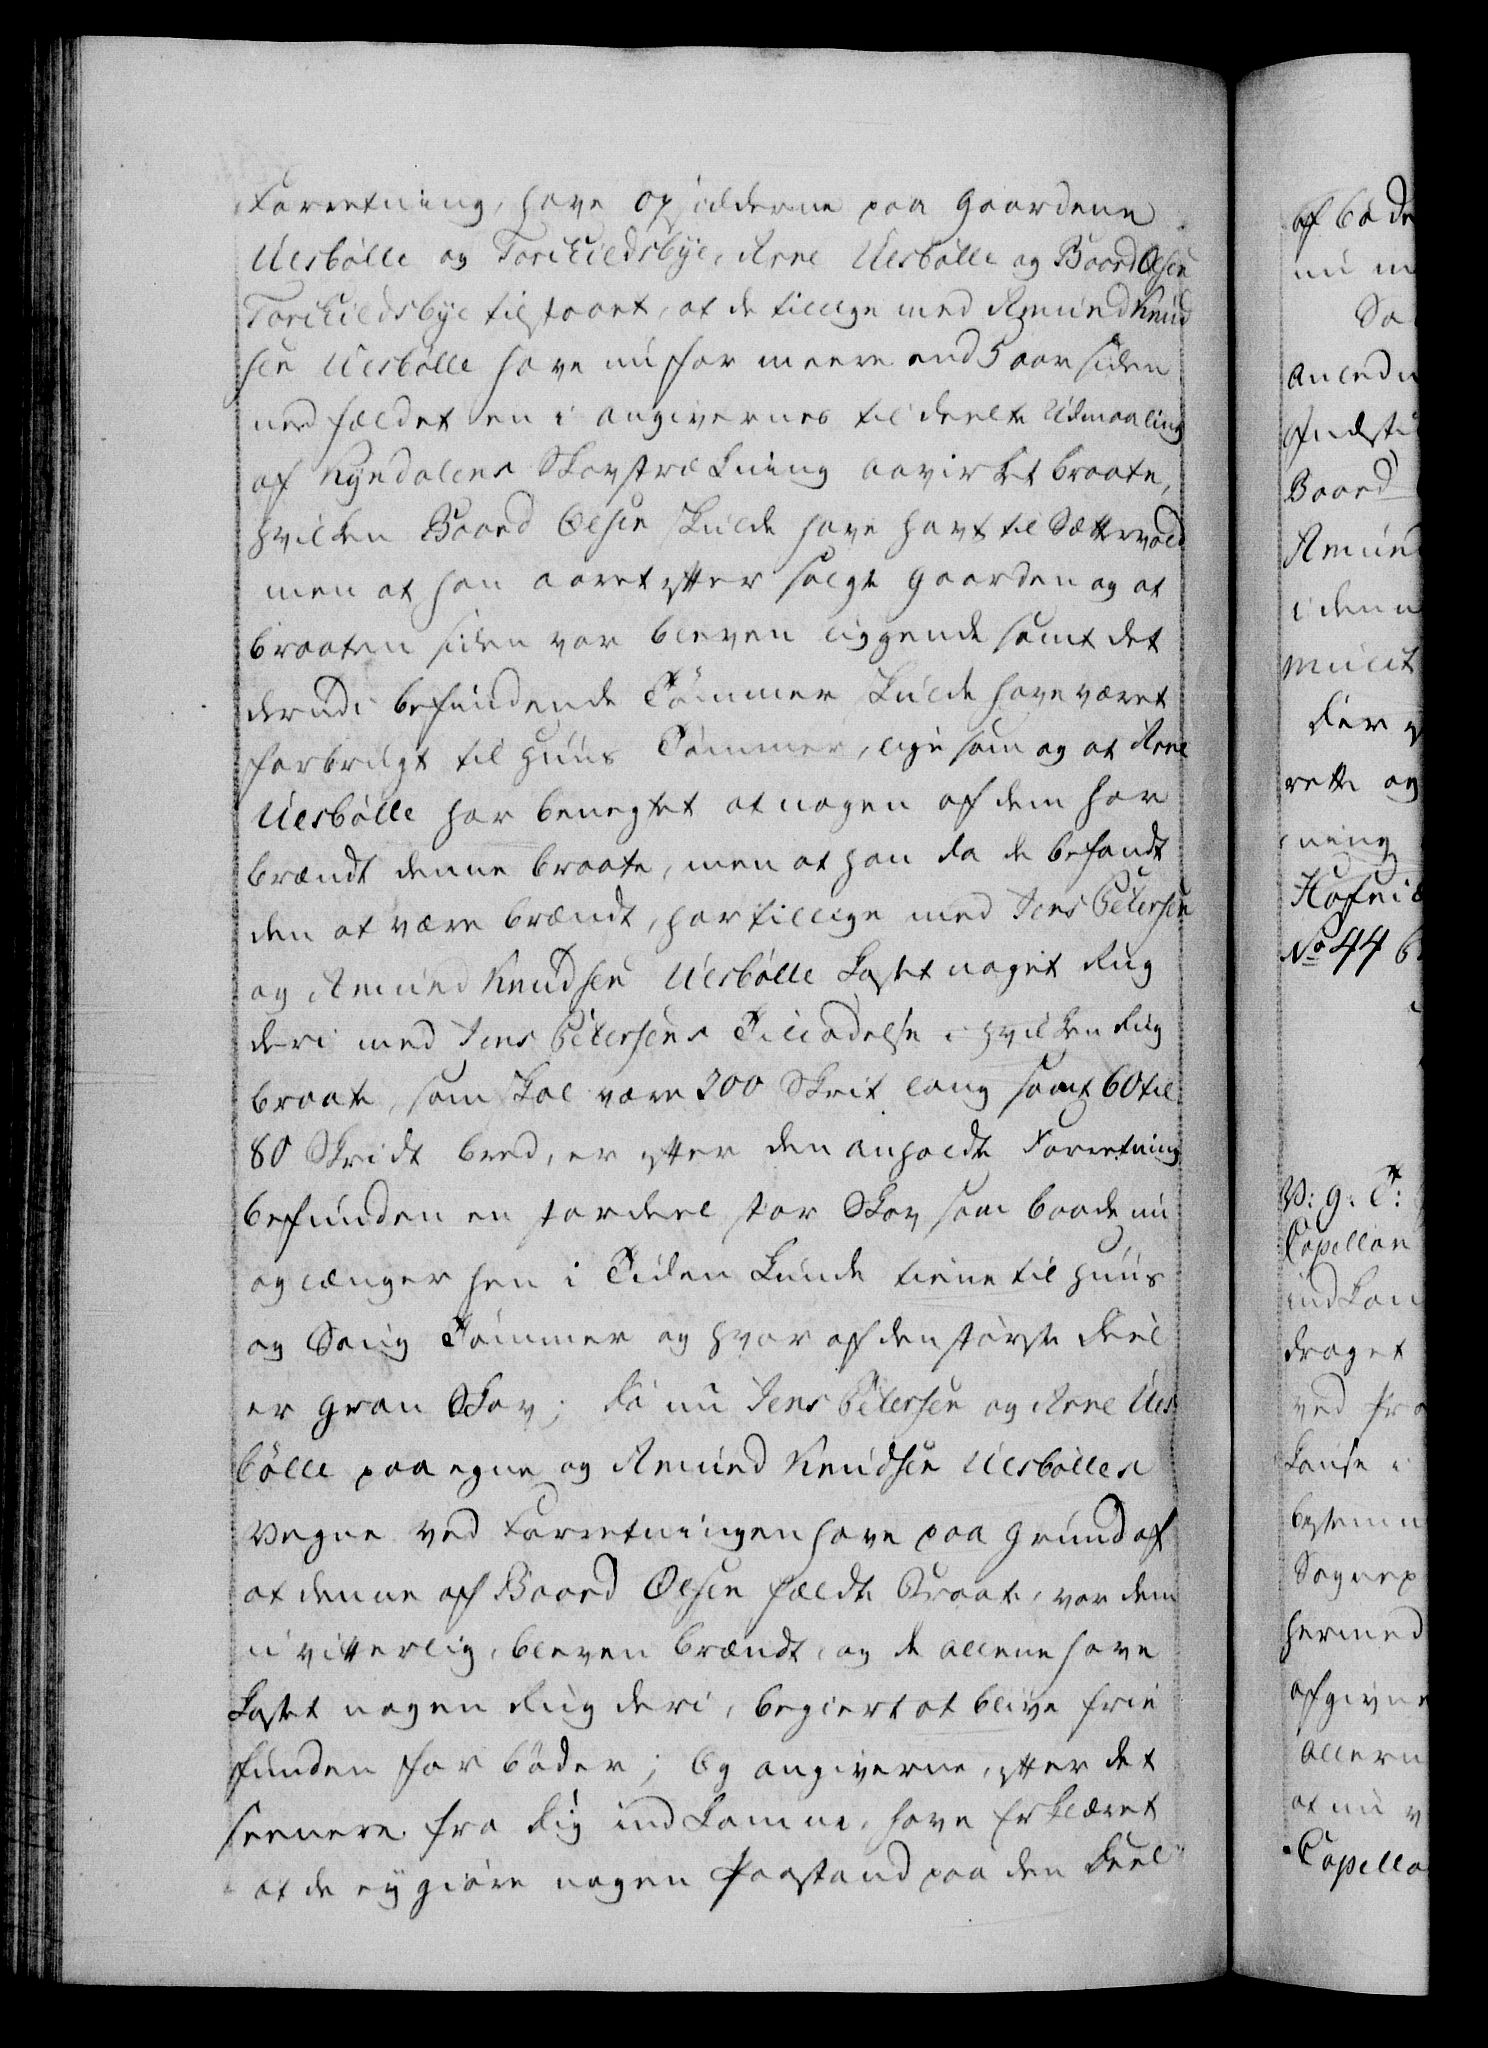 Forretning, have opsidderne paa Gaardene
Ulsbölle og Torchildsbye, Arne Ulsbölle og Baard Olsen
Torchildsbye tilstaaet, at de tillige med Amund Knud
sen Ulsbölle have nu for meere end 5 aar siden
nedfældet en i angivernes tildeelte Udmaaling
af Kyndalens Skovstrækning aavirket braate,
hvilken Baard Olsen skulde have havt til Sættevold
men at han aaret efter solgte Gaarden og at
braaten siden var bleven liggende samt det
derudi befindende Tömmer skulde have været
forbrugt til Huus Tömmer, ligesom og at Arne
Ulsbölle har benegtet at nogen af dem har
brændt denne braate, men at han da de befandt
den at være brændt, har tillige med Jens Petersen
og Amund Knudsen Ulsbölle kastet noget Rug
deri med Jens Petersens Tilladelse i hvilken Rug
braate, som skal være 200 Skrit lang samt 60 til
80 Skridt bred, er efter den anholdte Forretning
befunden en stordeel stor Skov som baade nu
og længer hen i Tiden kunde tiene til Huus
og Saug Tömmer og hvoraf den störste Deel
er Gran Skov; Da nu Jens Petersen og Arne Uls
bölle paa egne og Amund Knudsen Ulsbölles
Vegne ved Forretningen have paa Grund af
at denne af Baard Olsen fældte Braate, var dem
uvitterlig, bleven brændt, og de allene have
kastet nogen Rug deri, begiert at blive frie
funden for böder; Og angiverne, efter det
seenere fra Dig indkomne, have erklæret
at de ey giöre nogen Paastand paa den Deel
af böde
nu m
Saa
anledn
Baard
Amund
i denn
rette og
ning
Hafniæ
No 44
V: G: T:
Capellan
indkom
draget
ved fra
bestemm
Sognep
hermed
afgivne
allern
at nu v
Capella